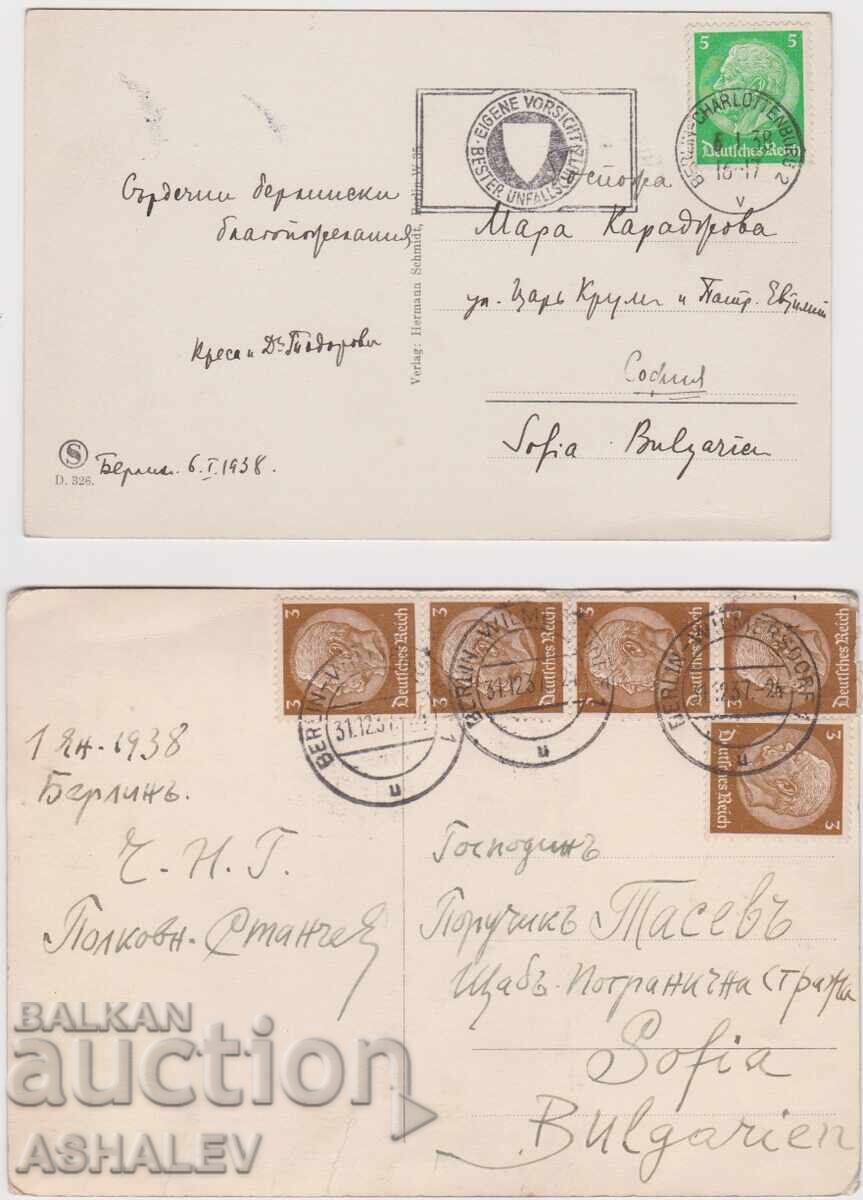 5 5
Deutsches Reich
BERLIN-CHARLOTTENBURG 2
6.1.38
16-17
v
EIGENE VORSICHT
BESTER UNFALLSCHUTZ
Сърдечни берлински
благопожелания
Креса и Дъ Тодорови
Берлин. 6.I.1938.
S
D. 326.
Verlag: Hermann Schmidt, Berlin W 35
Госпожа
Мара
ул. Царь Крумъ и Патр. Евтимий
София
Sofia Bulgarien
3 3
Deutsches Reich
3
Deutsches Reich
3
Deutsches Reich
3
Deutsches Reich
3 3
Deutsches Reich
BERLIN-WILMERSDORF 1
31.12.37.-24
u
1 Ян. 1938
Берлинъ.
Ч. Н. Г.
Полковн. Станчев
Господинъ
Поручикъ Тасевъ
Щабъ Погранична стража
Sofia
Bulgarien
BALKAN
auction
ASHALEV